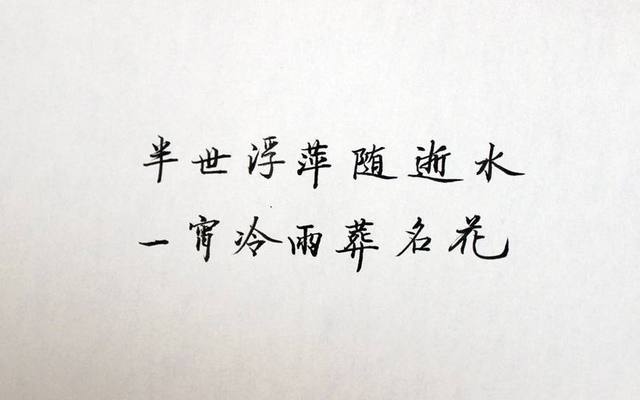 半世浮萍随逝水
一宵冷雨葬名花